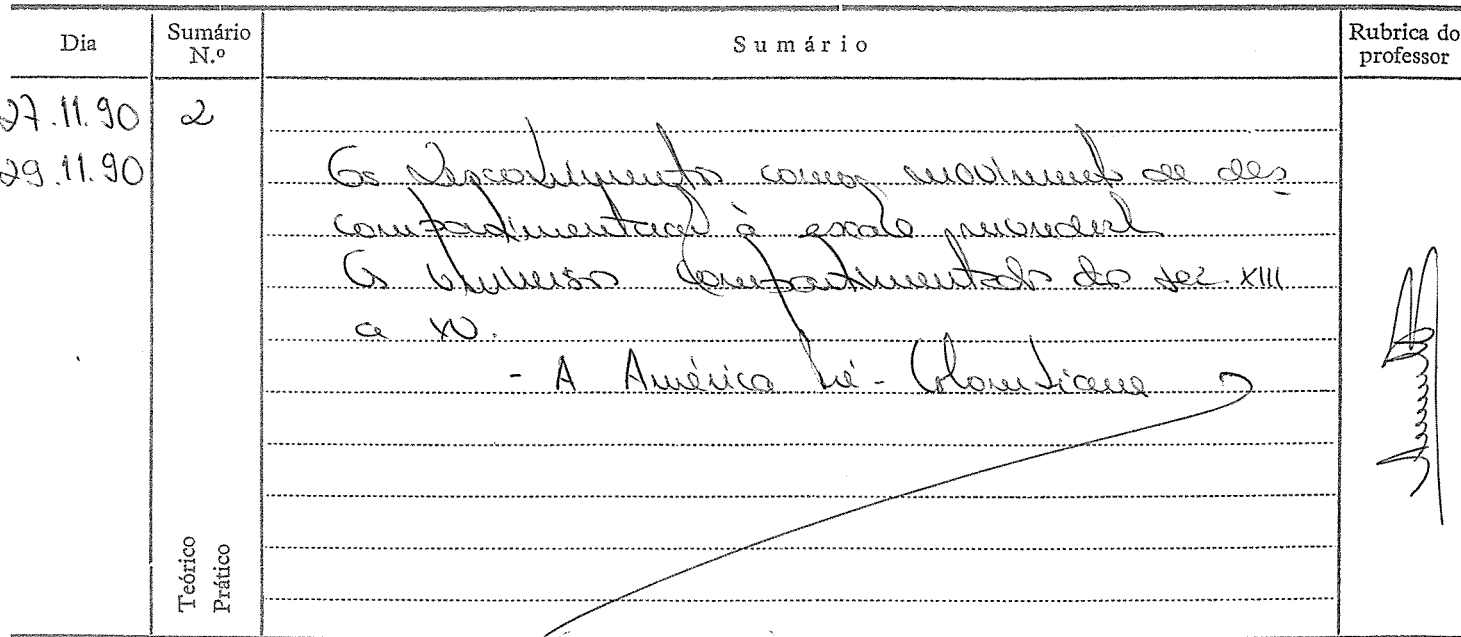 Dia
Sumário N.º
Sumário
Rubrica do professor
27.11.90
2
29.11.90
Os Descobrimentos como movimento de des
compartimentação à escala mundial
Os Universos Compartimentados do séc. XIII
a XV.
- A América Pré-Colombiana
Teórico
Prático